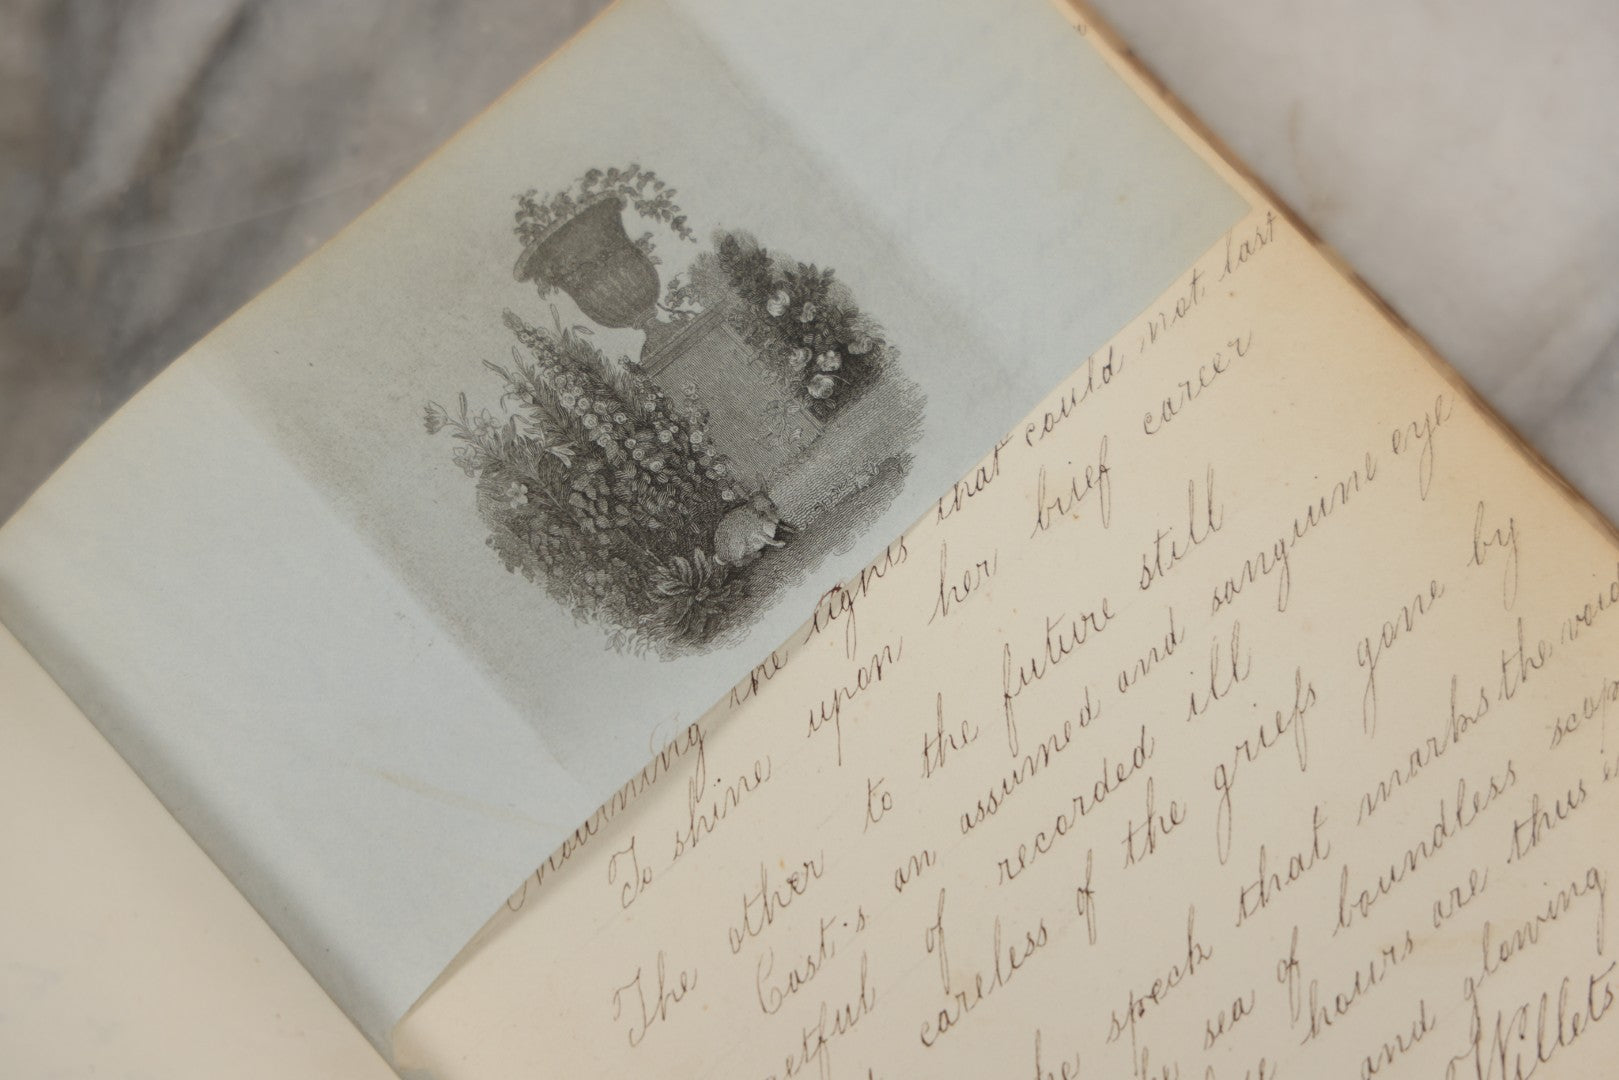 Mourning the lights that could not last
To shine upon her brief career
The other to the future still
Cast.s an assumed and sanguine eye
of recorded ill
careless of the griefs gone by
speck that marks the void
sea of boundless
hours are thus
and glowing
Willets